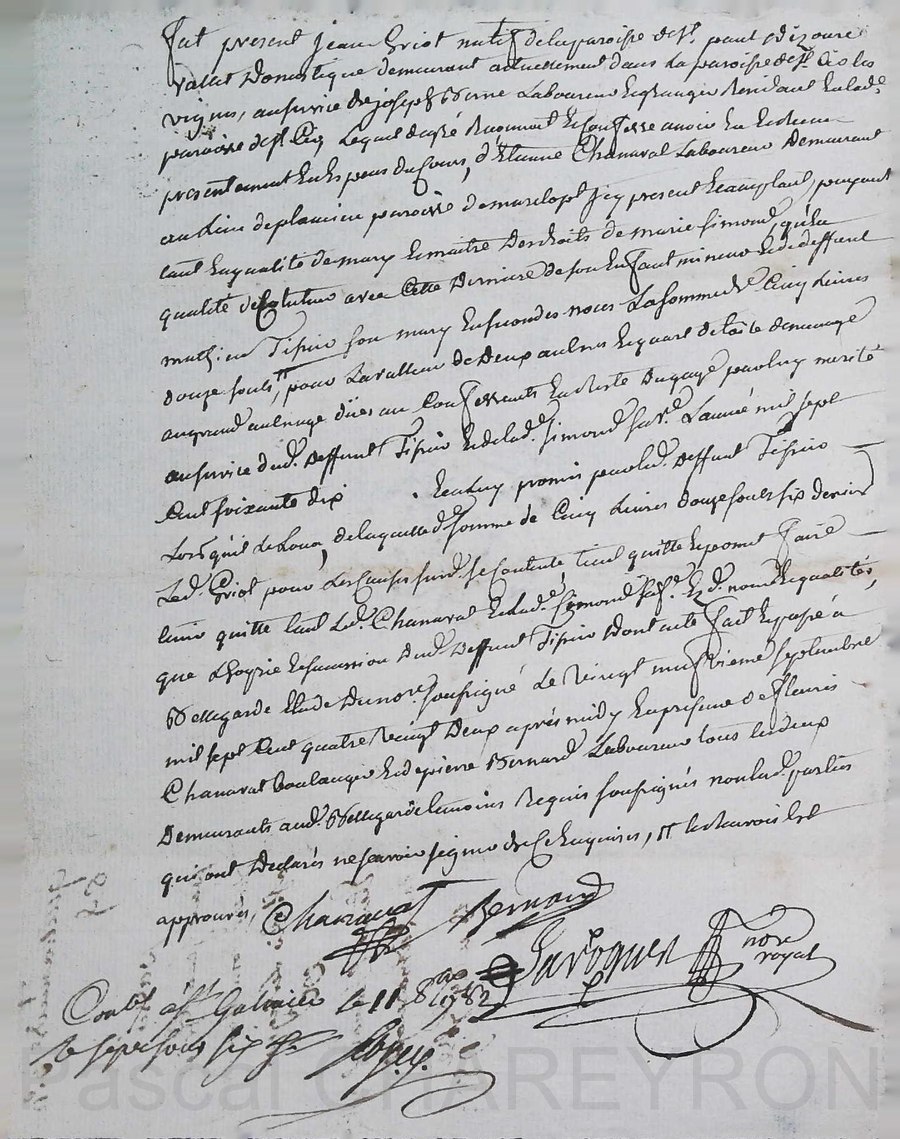 fut présent jean Griot natif de la paroisse de St. paul d'izoure
vallet Domestique demeurant actuellement dans la paroisse de St. Cir les
vignes, au service de joseph Laboureur & granger Residant en lad.
paroisse de St. Cir, Lequel de gré Reconnoit & Confesse avoir Eu & Receu
presentement En Especes du Cours, d'Etienne Chanaval Laboureur Demeurant
au Lieu de plancieu paroisse de marclopt jcy present & acceptant, payant
tant En qualité de mary & maitre Des droits de marie Simond, qu'En
qualité de Cotuteur avec Cette Derniere de son Enfant mineur & de deffunt
mathieu Tissier son mary En secondes noces La somme de Cinq Livres
douze sols, pour La valleur de Deux aulnes & quart de toile de menage
au grand aulnage dües au Confessant En Reste Du gage par luy merité
au service dud. Deffunt Tissier & de lad. Simond L'année mil sept
Cent soixante dix & a luy promis par led. Deffunt Tissier
Lors qu'il Le Loua, de laquelle d. somme de Cinq Livres douze sols six deniers
Led. Griot pour Les Causes susd. se Contente tient quitte & promet faire
tenir quitte tant Led. Chanaval & lad. Simond Esd. noms & qualités,
que L'hoyrie & succession Dud. Deffunt Tissier Dont acte fait & passé à
Bellegarde Etude Du nore. soussigné Le vingt neufvieme septembre
mil sept Cent quatre vingt Deux après midy En presence de fleuris
Chanaval Boulanger & de pierre Bernard Laboureur tous les deux
Demeurants aud. Bellegarde temoins Requis soussignés non lesd. parties
qui ont Declarés ne sçavoir signer de Ce Enquises, le Renvoi Est
approuvé,
Chanaval Bernard
nore
royal
Conté. à St. Galmier le 11 8bre 1782
R sept sous six d.
Pascal CHAREYRON